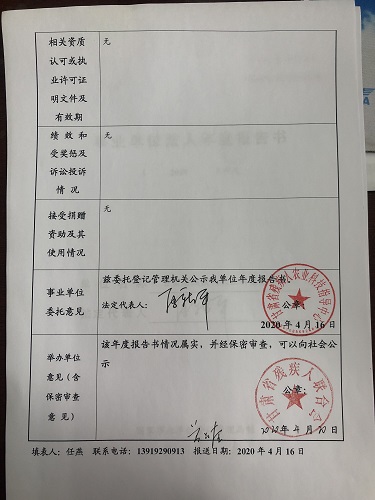 相关资质
认可或执
业许可证
明文件及
有效期
无
绩效和
受奖惩及
诉讼投诉
情况
无
接受捐赠
资助及其
使用情况
无
事业单位
委托意见
兹委托登记管理机关公示我单位年度报告书。
法定代表人：
公章：
2020 年 4 月 16 日
举办单位
意见（含
保密审查
意见）
该年度报告书情况属实，并经保密审查，可以向社会公
示
公章：
甘肃省残疾人联合会
2020年 4 月 20 日
填表人：任燕 联系电话：13919290913 报送日期：2020 年 4 月 16 日